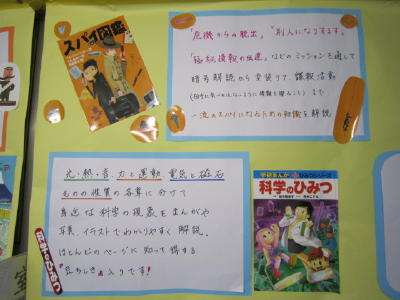 スパイ図鑑
"危機からの脱出" "別人になりすます。
"極秘情報の伝達" などのミッションを通して
暗号解読から変装リア 諜報活動
まで
一流のスパイになるための知識を解説
光・熱・音 力と運動 電気と磁石
ものの性質の各章に分けて
身近な科学の現象をまんがや
写真、イラストでわかりやすく解説。
ほとんどのページに知って得する
"豆ちしき" 入りです!
科学のひみつ
学研まんが
科学のひみつ